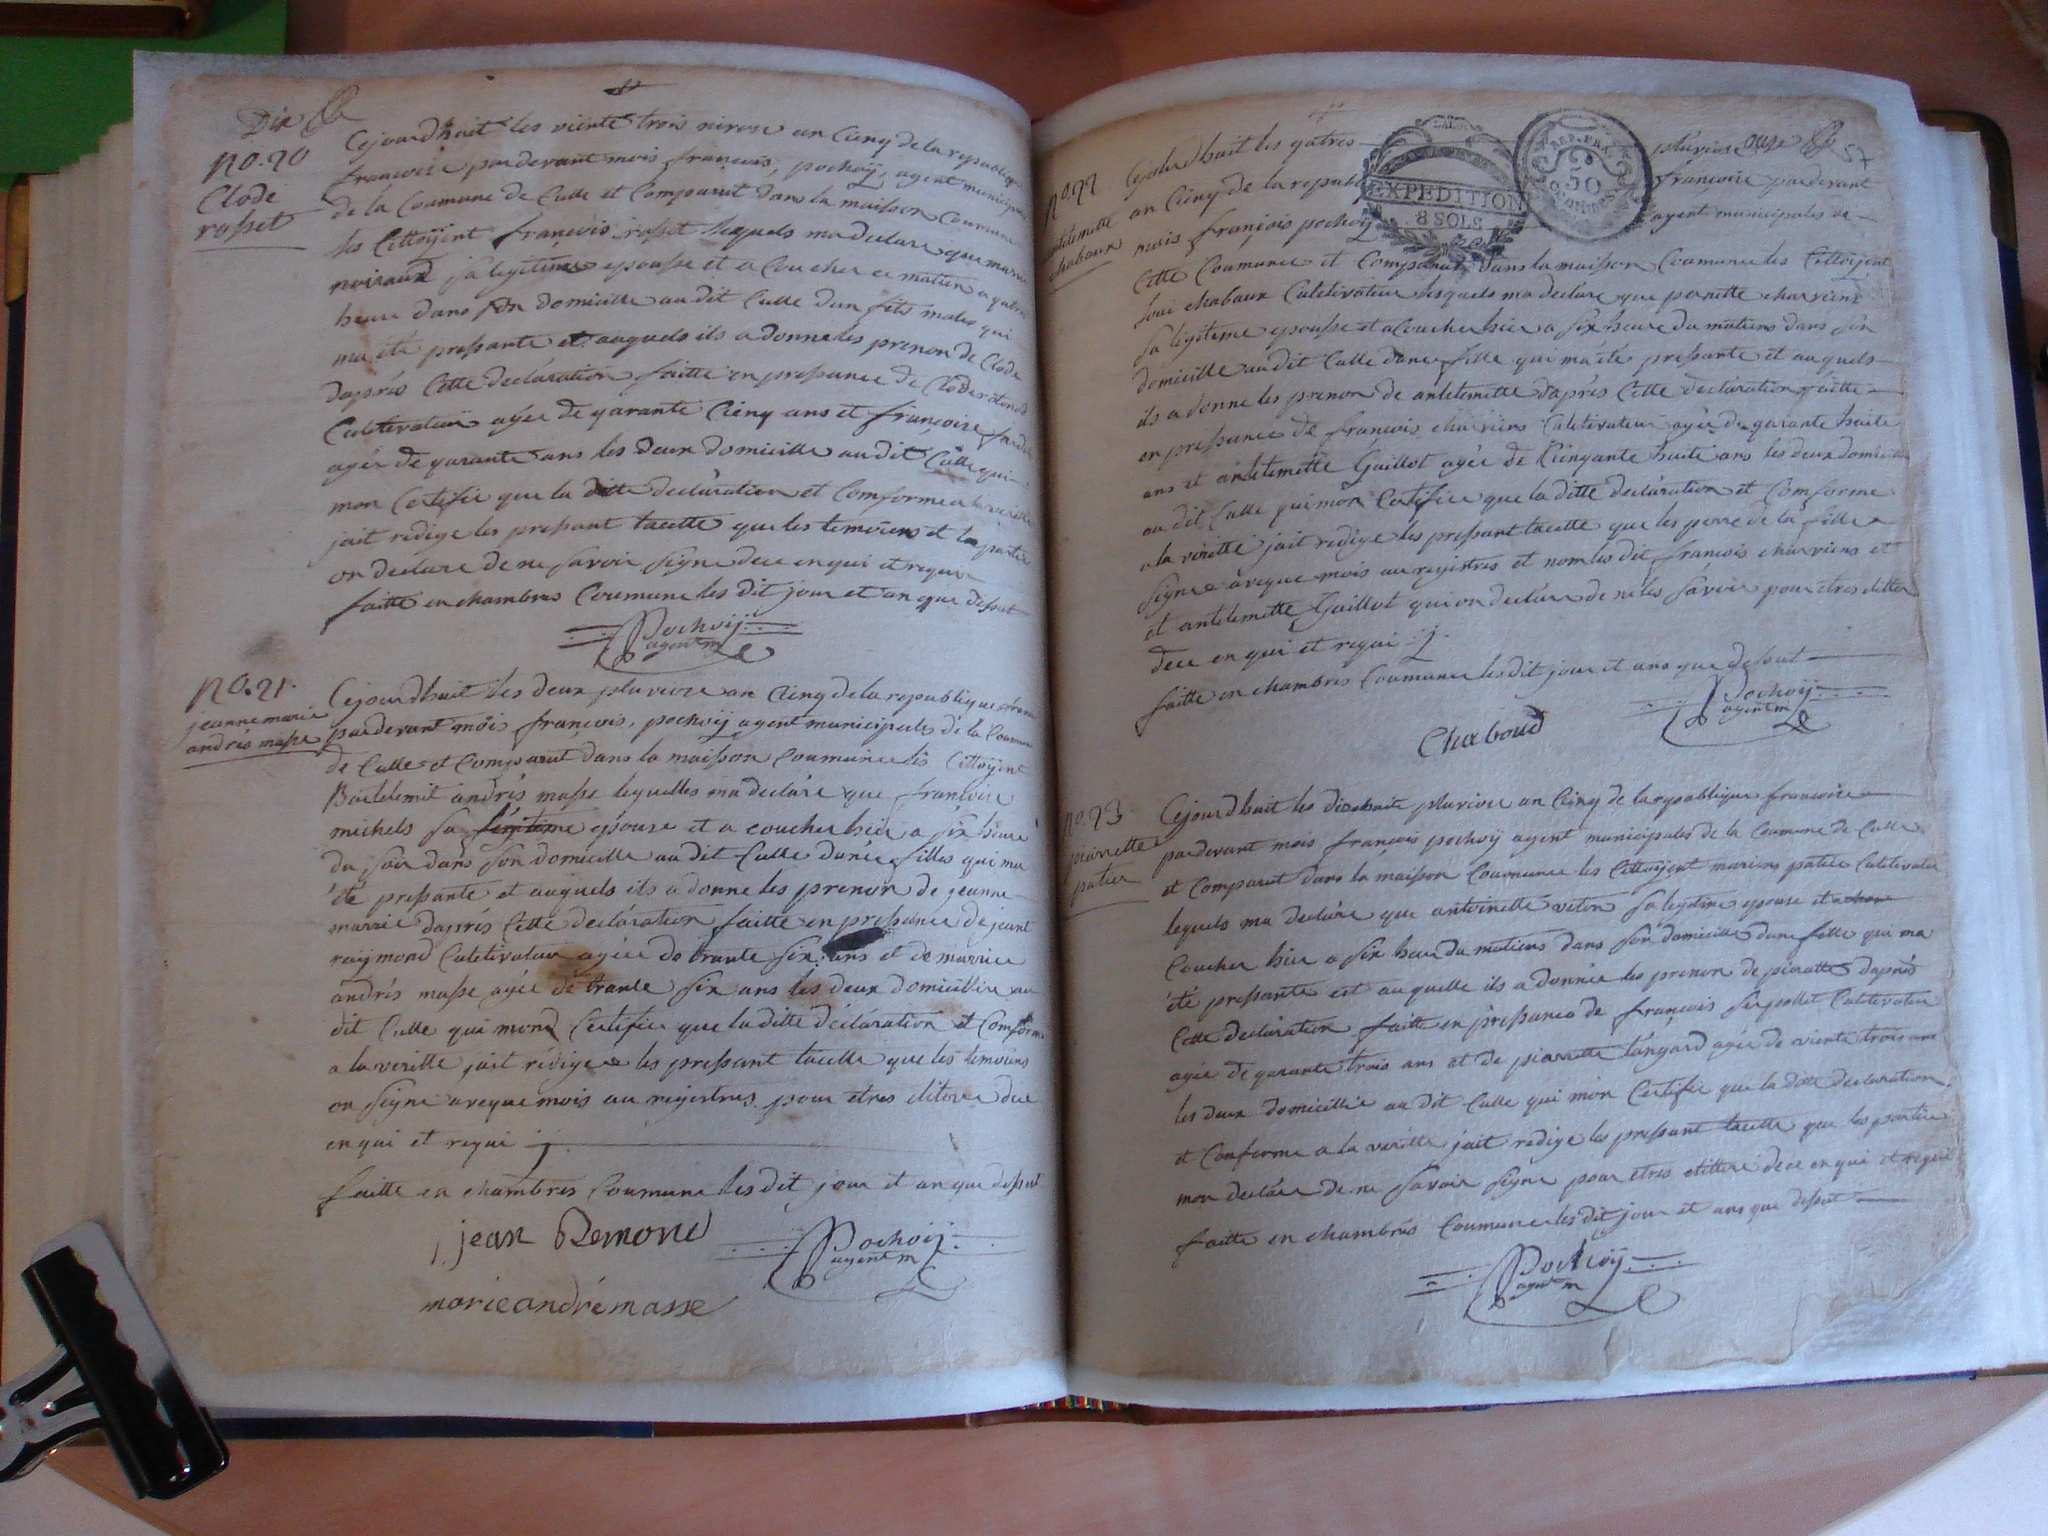 Dix
No. 20
Clode
rosset
Cejourdhuit les viente trois nivose an Cienq de la republique
francoise pardevant mois francois, pochoÿ, agent municipales
de la Coumune de Culle et Comparut dans la maisson Coumune
les Cittoÿent francois rosset lequels ma declare que marie
noiraud sa legitime epousse et a Coucher ce matien a quatre
heure dans son domicille au dit Culle dun fils males qui
ma été pressante et auquels ils a donne les prenon de Clode
daprés Cette declaration faitte en pressance de Clode
Culetivateur agée de qarante Cienq ans et francoise
agée de qarante ans les deux domicille au dit Culle qui
mon Certifié que la ditte declaration et Comforme a la verite
jait redige les pressant lacette que les temoiens et la partie
on declare de ne savoir signe dece enqui et requi
faitte en chambres Coumune les dit jour et an que dessut
Pochoÿ
agent m
No. 21.
jeanne marie
andrés masse
Cejourdhuit les deux pluviose an Cienq de la republique
pardevant mois francois, pochoÿ agent municipales de la Coumune
de Culle et Comparut dans la maisson Coumune les Cittoÿent
Bartelemit andrés masse lequelles ma declare que francoise
michels sa legitime epouse et a coucher hier a six heure
du soir dans son domicille au dit Culle dunée filles qui ma
été pressante et auquels ils a donne les prenon de jeanne
marrie daprés Cette declaration faitte en pressance de jeant
raÿmond Culetivateur agée de trante six ans et de marrie
andrés masse agée de trante six ans les deux domicillie au
dit Culle qui mond Certifie que la ditte déclaration et Comforme
a la veritte jait redige les pressant lacette que les temoiens
on signe aveque mois au registres pour etres
enqui et requi j.
faitte en chambres Coumune les dit jour et an que dessut
jean Remond
Pochoÿ
agent m
marie andré masse
No. 22
chabaux
EXPEDITION
8 SOLS
REP. FRA.
50
Cejourdhuit les qatres pluviose onze
an Cienq de la republique francoise pardevant
mois françois pochoÿ agent municipales de
Cette Coumune et Comparut dans la maisson Coumune les Cittoÿent
loui chabaux Culetivateur lesquels ma declare que perrette charviens
sa legiteme epousse et a Coucher hier a six heure du matiens dans son
domicille au dit Culle dune fille qui ma été pressante et auquels
ils a donne les prenon de antelemette daprés Cette declaration faitte
en pressance de francois charviens Culetivateur agée de qarante huite
ans et antelemette Guillot agée de Cienqante huite ans les deux domicille
au dit Culle qui mon Certifiée que la ditte declaration et Comforme
a la veritté jait redige les pressant lacette que les perre de la fille a
signe aveque mois au registres et nom les dit francois charviens et
et antelemette Guillot qui on declare de ne les savoir pour etres
dece enqui et requi j.
faitte en chambres Coumune les dit jour et ans que dessut
Pochoÿ
agent m
Chaboud
No. 23
pierrette
patier
Cejourdhuit les dixhuite pluviose an Cienq de la republique francoise
pardevant mois francois pochoÿ agent municipales de la Coumune de Culle
et Comparut dans la maisson Coumune les Cittoÿent mariens patier Culetivateur
lequels ma declare que antoinette veton sa legitime epouse et a
Coucher hier a six heur du matiens dans son domicille dune fille qui ma
été pressante est auquelle ils a donnée les prenon de piaratte daprés
Cette declaration faitte en pressance de francois serpollet Culetivateur
agée de qarante trois ans et de piarratte agée de viente trois ans
les deux domicillie au dit Culle qui mon Certifie que la ditte declaration
et Conforme a la veritte jait redige les pressant lacette que les partie
mon declare de ne savoir signe pour etres dece enqui et requi
faitte en chambrés Coumune les dit jour et ans que dessut
Pochoÿ
agent m